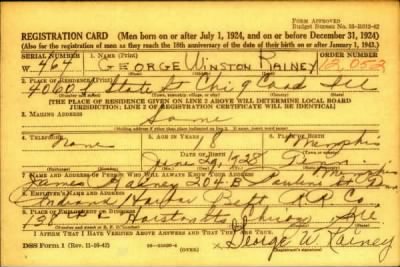 FORM APPROVED
REGISTRATION CARD (Men born on or after July 1, 1924, and on or before December 31, 1924)
(Also for the registration of men as they reach the 18th anniversary of the date of their birth on or after January 1, 1943.)
SERIAL NUMBER 1. NAME (Print) ORDER NUMBER
W. 464 GEORGE WINSTON RAINEY
2. PLACE OF RESIDENCE (Print)
State St
[THE PLACE OF RESIDENCE GIVEN ON LINE 2 ABOVE WILL DETERMINE LOCAL BOARD
JURISDICTION; LINE 2 OF REGISTRATION CERTIFICATE WILL BE IDENTICAL]
3. MAILING ADDRESS
Same
4. TELEPHONE 5. AGE IN YEARS 6. PLACE OF BIRTH
None 18 Memphis
DATE OF BIRTH
June Tenn.
7. NAME AND ADDRESS OF PERSON WHO WILL ALWAYS KNOW YOUR ADDRESS
James Rainey 204 B Pauline St
8. EMPLOYER'S NAME AND ADDRESS
Indiana Harbor Belt RR Co
9. PLACE OF EMPLOYMENT OR BUSINESS
I AFFIRM THAT I HAVE VERIFIED ABOVE ANSWERS AND THAT THEY ARE TRUE.
DSS Form 1 (Rev. 11-16-42)
George W. Rainey